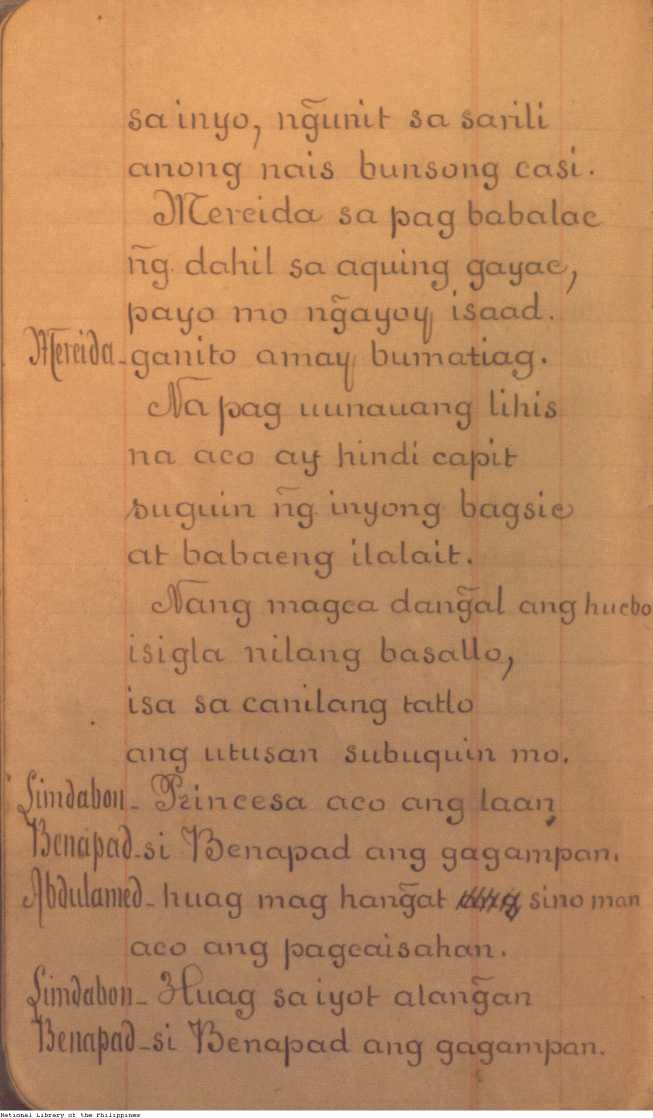 sa inyo, ng̃unit sa sarili
anong nais bunsong casi.
Mereida sa pag babalac
n̄g dahil sa aquing gayac,
payo mo ng̃ayoy isaad.
Mereida - ganito amay bumatiag.
Na pag uunauang lihis
na aco ay hindi capit
suguin n̄g inyong bagsic
at babaeng ilalait.
Nang magca dang̃al ang hucbo
isigla nilang basallo,
isa sa canilang tatlo
ang utusan subuquin mo.
Lindabon - Princesa aco ang laan,
Benapad - si Benapad ang gagampan.
Abdulamed - huag mag hang̃at sino man
aco ang pagcaisahan.
Lindabon - Huag sa iyot alang̃an
Benapad - si Benapad ang gagampan.
National Library of the Philippines